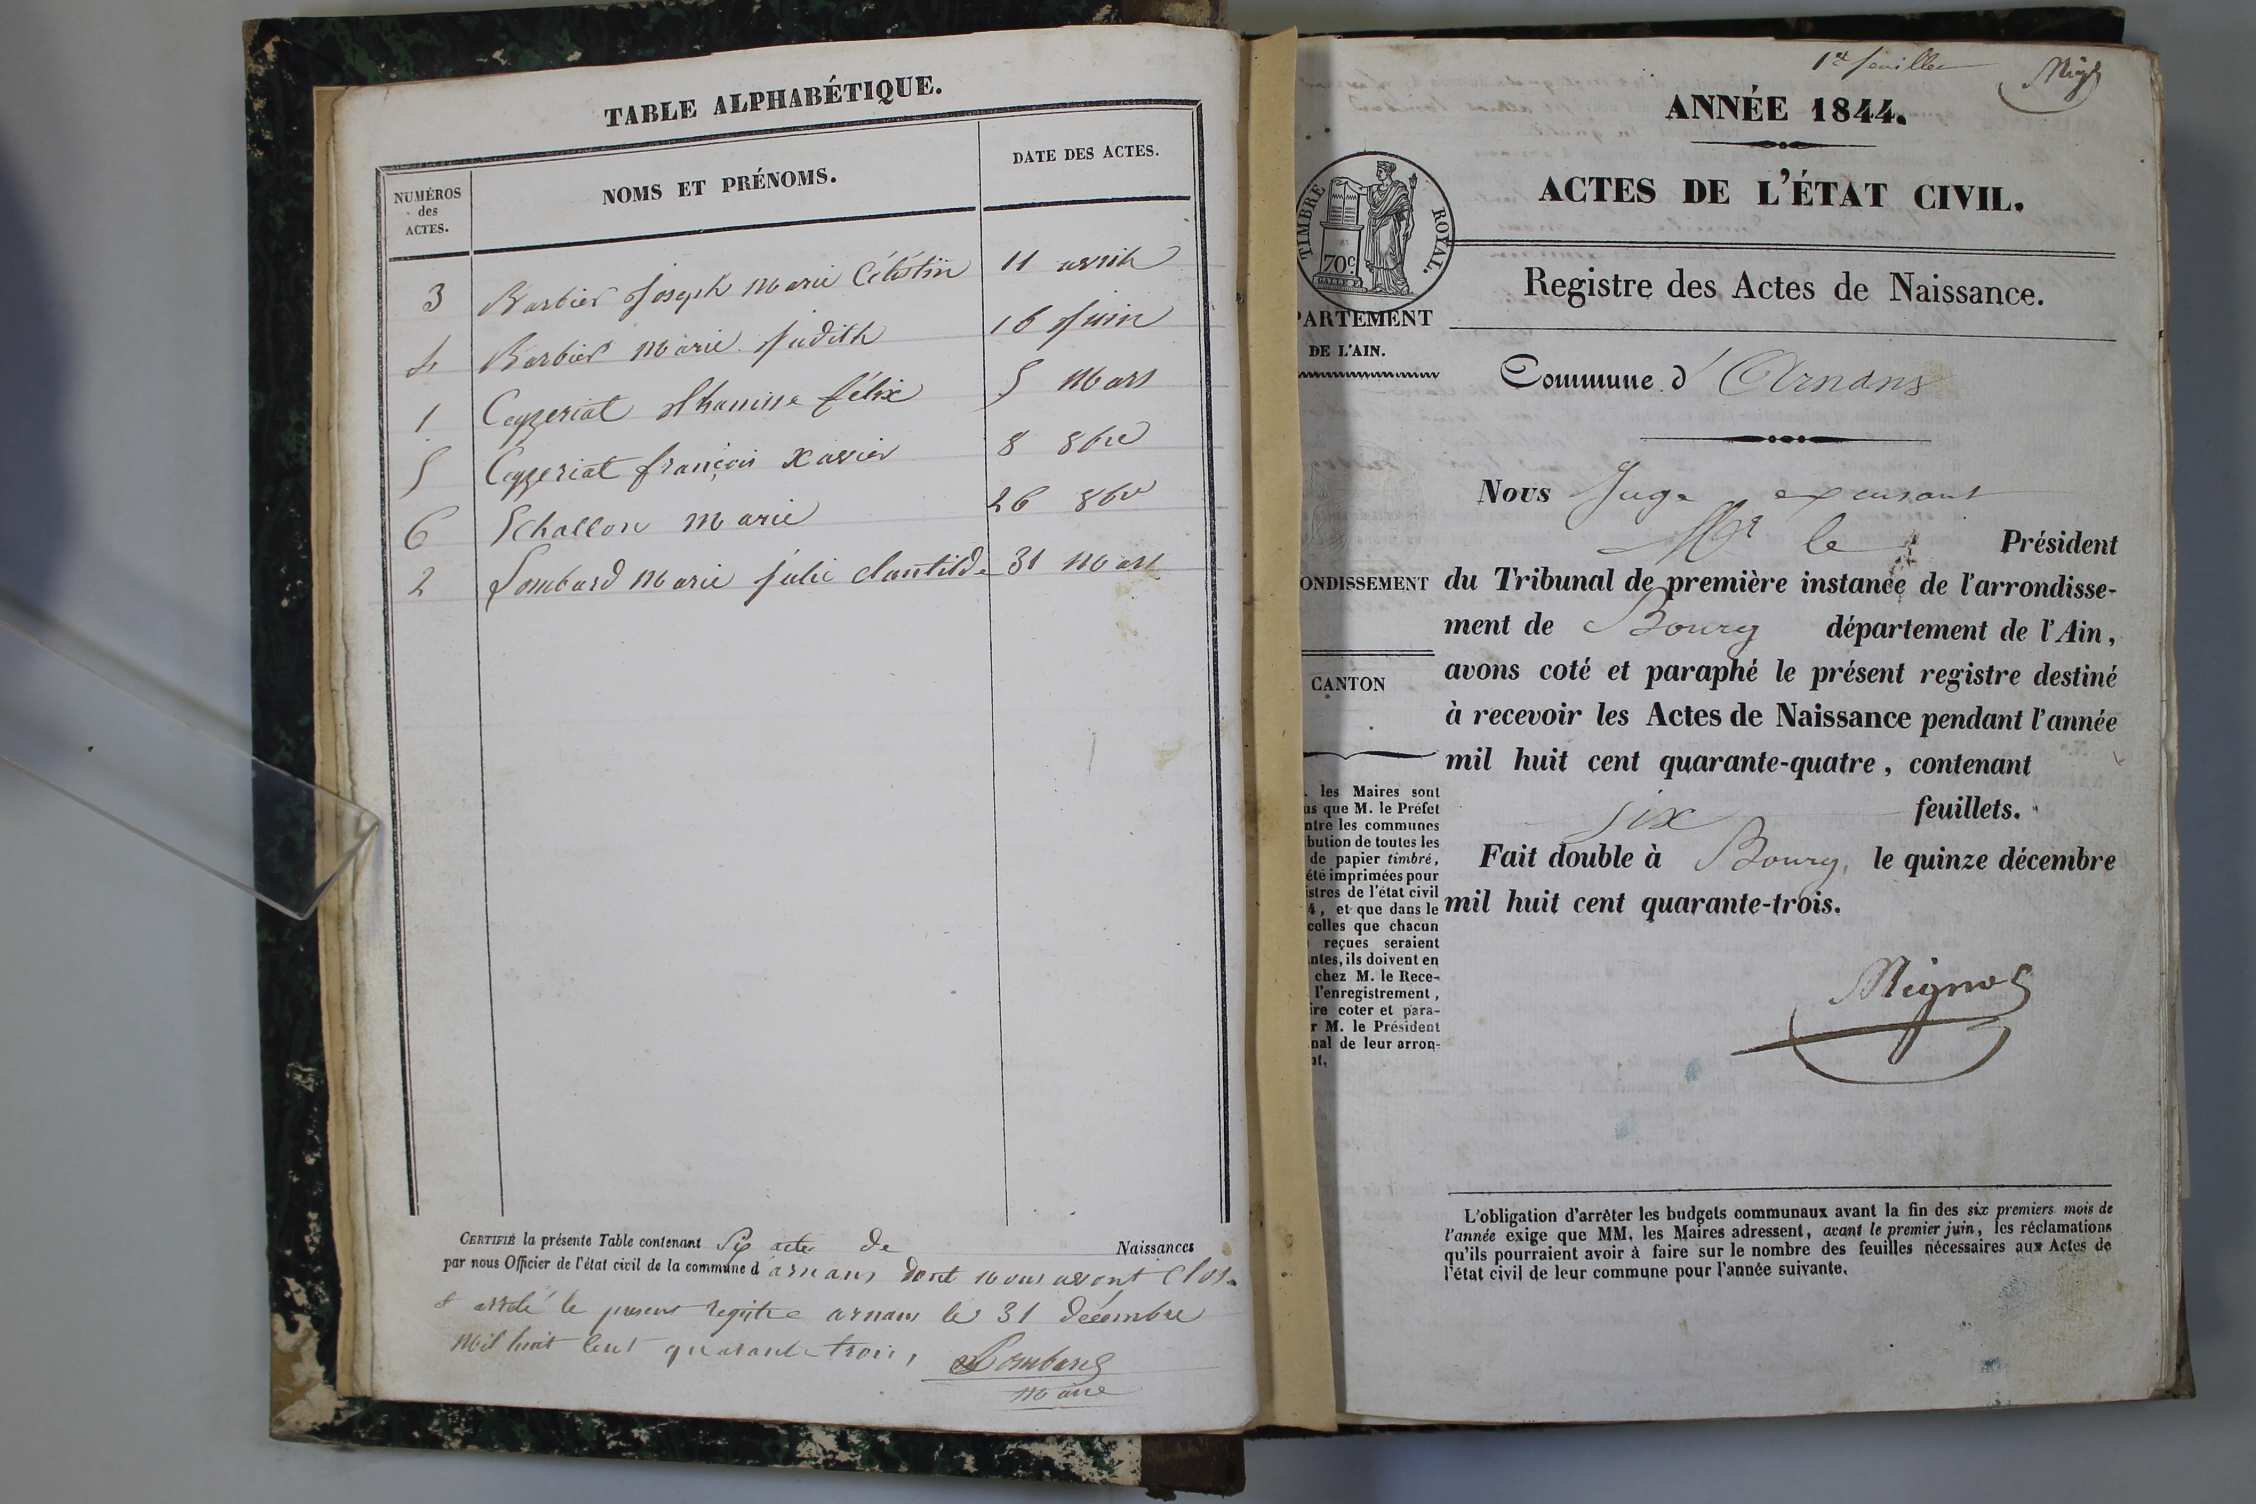 TABLE ALPHABÉTIQUE.
NUMÉROS
des
ACTES.
NOMS ET PRÉNOMS.
DATE DES ACTES.
3 Barbier Joseph Marie Célestin 11 avril
4 Barbier Marie Judith 16 Juin
1 Ceyzeriat félix 5 Mars
5 Ceyzeriat françois xavier 8 8bre
6 Echallon Marie 26 8bre
2 Lombard Marie Julie Clantilde 31 Mars
CERTIFIÉ la présente Table contenant Six actes de Naissances
par nous Officier de l'état civil de la commune d arnans dont nous avont Clos
& arrêté le present registre arnans le 31 décembre
Mil huit Cent quarante trois,
Lombard
Maire
1er feuillet
ANNÉE 1844.
ACTES DE L'ÉTAT CIVIL.
TIMBRE ROYAL.
70c.
PARTEMENT
DE L'AIN.
Registre des Actes de Naissance.
Commune d'Arnans
Nous Juge excusant
Mr le Président
ONDISSEMENT
du Tribunal de première instance de l'arrondisse-
ment de Bourg département de l'Ain,
avons coté et paraphé le présent registre destiné
CANTON
à recevoir les Actes de Naissance pendant l'année
mil huit cent quarante-quatre, contenant
six feuillets.
Fait double à Bourg, le quinze décembre
mil huit cent quarante-trois.
Mignot
. les Maires sont
us que M. le Préfet
ntre les communes
bution de toutes les
de papier timbré,
été imprimées pour
istres de l'état civil
4, et que dans le
celles que chacun
reçues seraient
ntes, ils doivent en
chez M. le Rece-
l'enregistrement,
ire coter et para-
r M. le Président
nal de leur arron-
nt.
L'obligation d'arrêter les budgets communaux avant la fin des six premiers mois de
l'année exige que MM. les Maires adressent, avant le premier juin, les réclamations
qu'ils pourraient avoir à faire sur le nombre des feuilles nécessaires aux Actes de
l'état civil de leur commune pour l'année suivante.